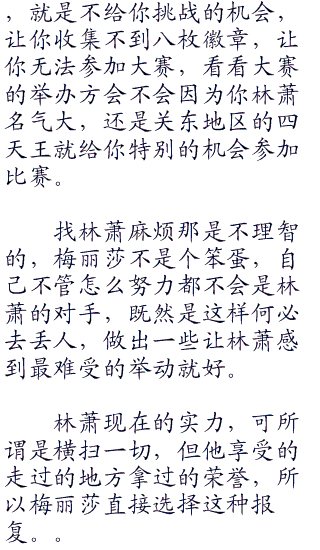 ，就是不给你挑战的机会，
让你收集不到八枚徽章，让
你无法参加大赛，看看大赛
的举办方会不会因为你林萧
名气大，还是关东地区的四
天王就给你特别的机会参加
比赛。
找林萧麻烦那是不理智
的，梅丽莎不是个笨蛋，自
己不管怎么努力都不会是林
萧的对手，既然是这样何必
去丢人，做出一些让林萧感
到最难受的举动就好。
林萧现在的实力，可所
谓是横扫一切，但他享受的
走过的地方拿过的荣誉，所
以梅丽莎直接选择这种报
复。。